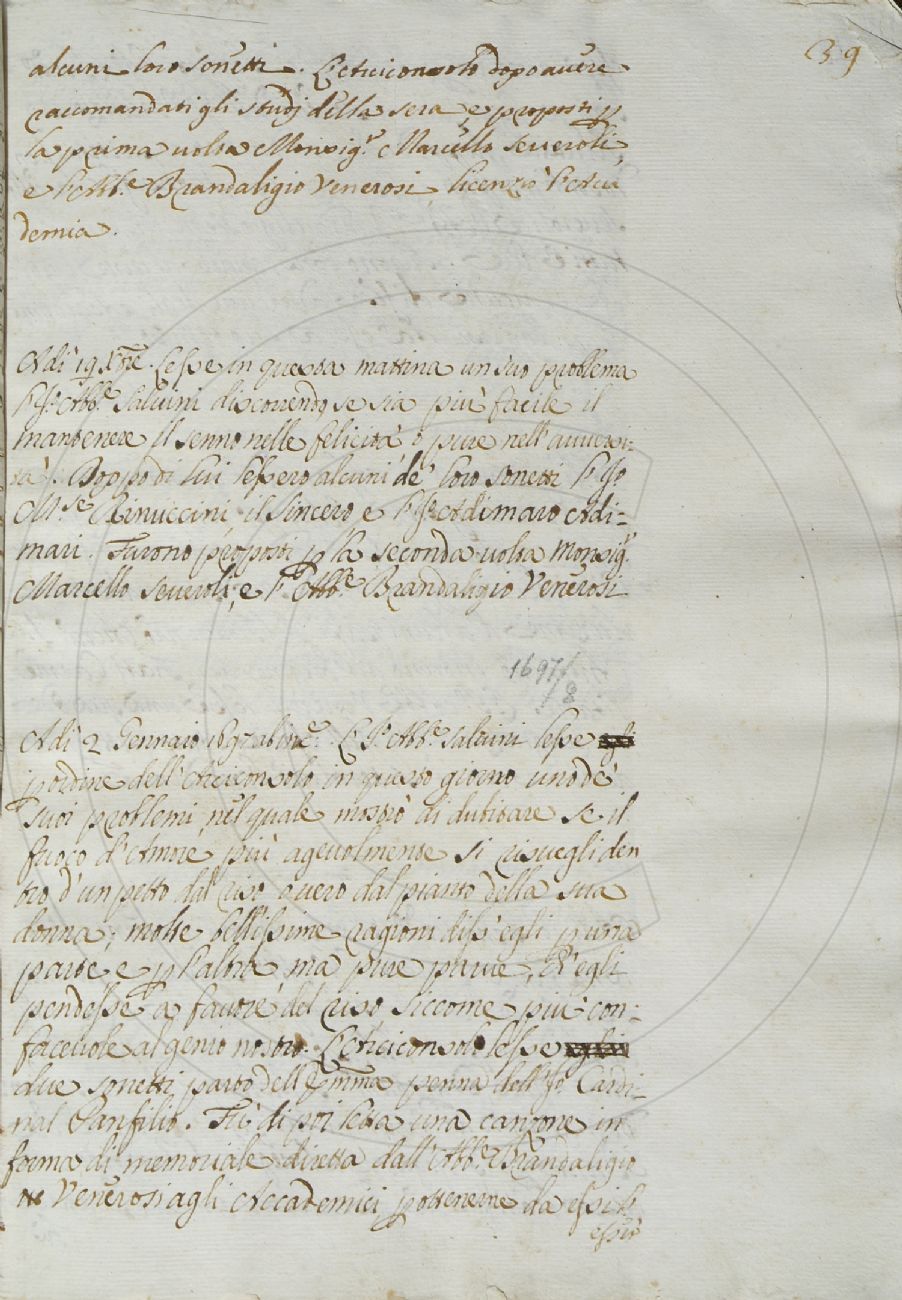 39
alcuni loro sonetti. L'Arciconsolo dopo avere
raccomandati gli studj della sera, e proposti p
la prima volta Monsig.r Marcello Severoli,
e l'Abb.e Brandaligio Venerosi, licenziò l'Acca
demia.
Adì 19 Xbre. Lesse in questa mattina un suo problema
l'Ab.e Salvini discorrendo, se sia più facile il
mantenere il senno nelle felicità ò pure nell'avversi-
tà. Doppo di lui lessero alcuni de' loro sonetti il S.r
M.se Rinuccini il Sincero e il S.r Adimaro Adi-
mari. Furono proposti p la seconda volta Monsig.r
Marcello Severoli, e l'Abb.e Brandaligio Venerosi
1697/8
Adì 2 Gennaio 1697 ab inc.e. Il S.r Abb.e Salvini lesse
p ordine dell'Arciconsolo in questo giorno uno de'
suoi problemi, nel quale mostrò di dubitare se il
fuoco d'Amore, più agevolmente si risvegli den
tro d'un petto dal riso overo dal pianto della sua
donna; molte bellissime ragioni diss'egli p una
parte e p l'altra, ma pure parve, ch'egli
pendesse a favore del riso siccome più con-
facevole al genio nostro. L'Arciconsolo lesse
due sonetti parto dell'Emma penna dell S.r Cardi-
nal Panfilio. Fù di poi letta una canzone in
forma di memoriale diretta dall'Abb.e Brandaligio
Venerosi agli Accademici p ottenerne da essi l'
esser